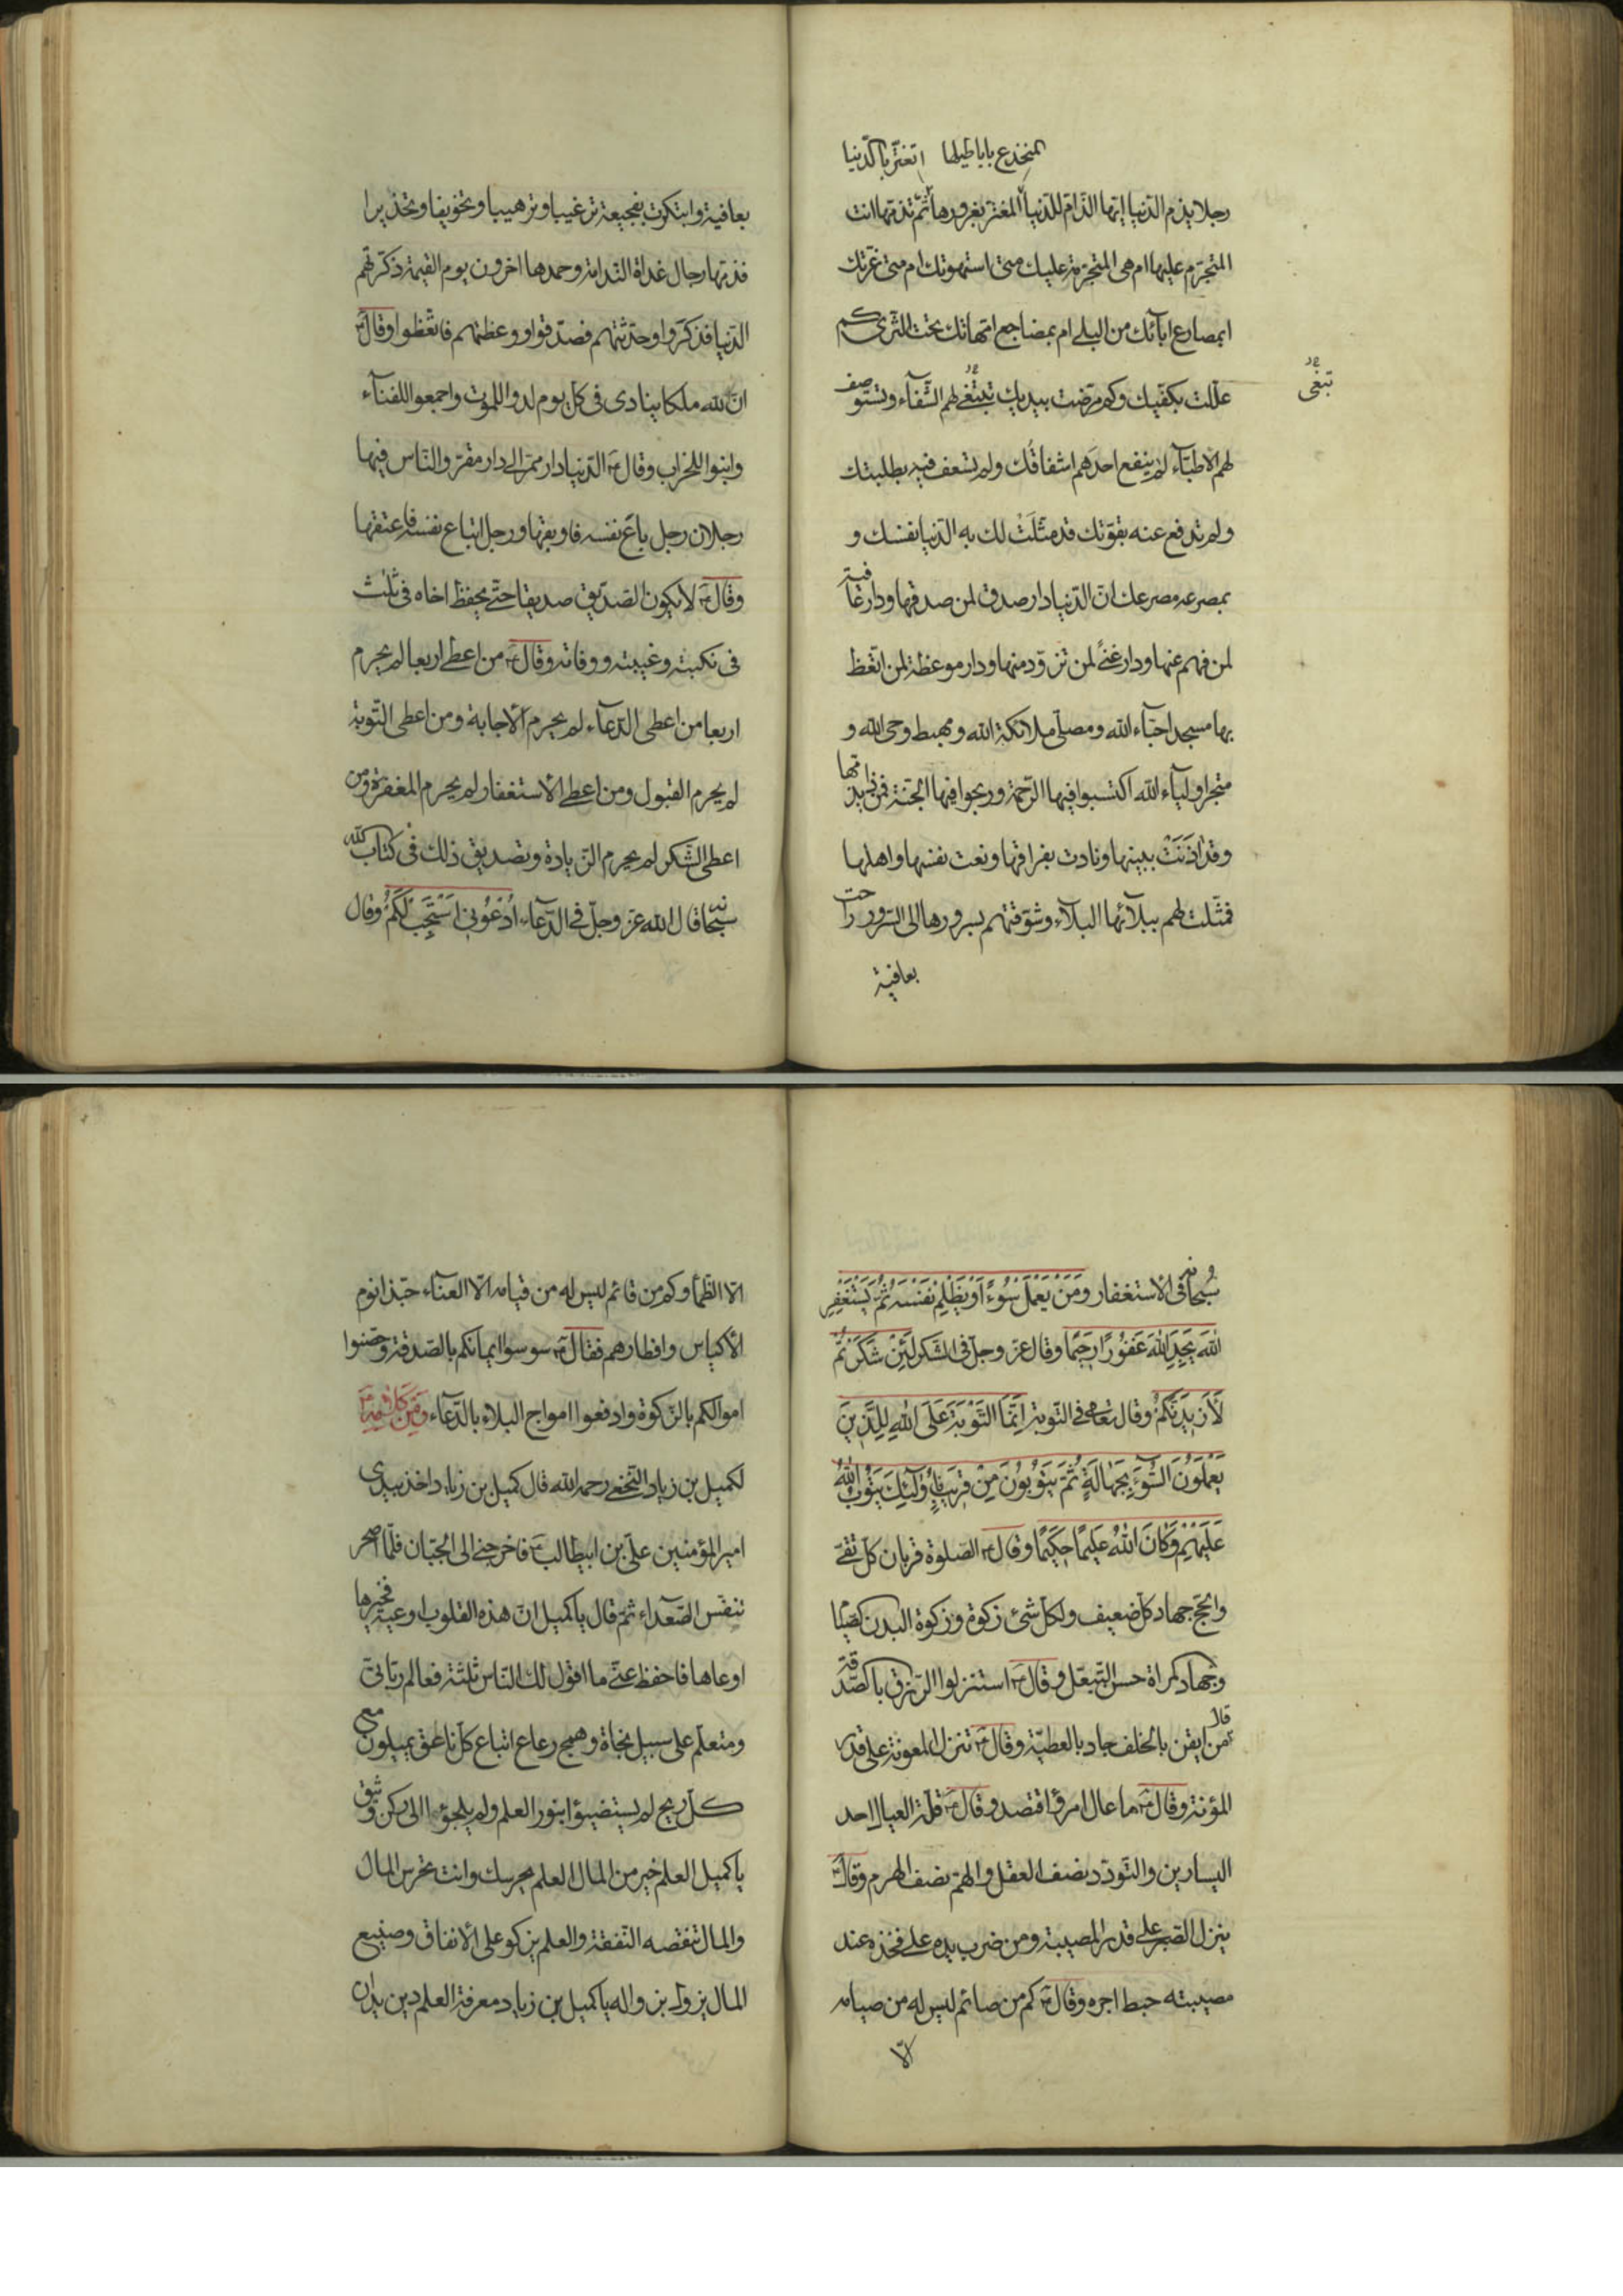 المنخدع باباطيلها اتغتر بالدنيا
رجلا يذم الدنيا ايها الذام للدنيا المغتر بغرورها ثم تذمها انت
المتجرم عليها ام هى المتجرمة عليك متى استهوتك ام متى غرتك
ابمصارع ابائك من البلى ام بمضاجع امهاتك تحت الثرى كم
عللت بكفيك وكم مرضت بيديك تبتغى لهم الشفاء وتستوصف
تبغى
لهم الاطباء لم ينفع احدهم اشفاقك ولم تسعف فيه بطلبتك
ولم تدفع عنه بقوتك قد مثلت لك به الدنيا نفسك و
بمصرعه مصرعك ان الدنيا دار صدق لمن صدقها ودار عافية
لمن فهم عنها ودار غنى لمن تزود منها ودار موعظة لمن اتعظ
بها مسجد احباء الله ومصلى ملائكة الله ومهبط وحى الله و
متجر اولياء الله اكتسبوا فيها الرحمة وربحوا فيها الجنة فمن ذا يذمها
وقد اذنت ببينها ونادت بفراقها ونعت نفسها واهلها
فمثلت لهم ببلائها البلاء وشوقتهم بسرورها الى السرور راحت
بعافية
بعافية وابتكرت بفجيعة ترغيبا وترهيبا وتخويفا وتحذيرا
فذمها رجال غداة الندامة وحمدها اخرون يوم القيمة ذكرتهم
الدنيا فذكروا وحدثتهم فصدقوا ووعظتهم فاتعظوا وقال ع
ان لله ملكا ينادى فى كل يوم لدوا للموت واجمعوا للفناء
وابنوا للخراب وقال ع الدنيا دار ممر الى دار مقر والناس فيها
رجلان رجل باع نفسه فاوبقها ورجل ابتاع نفسه فاعتقها
وقال ع لا يكون الصديق صديقا حتى يحفظ اخاه فى ثلث
فى نكبته وغيبته ووفاته وقال ع من اعطى اربعا لم يحرم
اربعا من اعطى الدعاء لم يحرم الاجابة ومن اعطى التوبة
لم يحرم القبول ومن اعطى الاستغفار لم يحرم المغفرة ومن
اعطى الشكر لم يحرم الزيادة وتصديق ذلك فى كتاب الله
سبحانه قال الله عز وجل فى الدعاء اُدْعُونِى اَسْتَجِبْ لَكُمْ وقال
سبحانه فى الاستغفار وَمَنْ يَعْمَلْ سُوءً اَوْ يَظْلِمْ نَفْسَهُ ثُمَّ يَسْتَغْفِرِ
اللهَ يَجِدِ اللهَ غَفُورًا رَحِيمًا وقال عز وجل فى الشكر لَئِنْ شَكَرْتُمْ
لَاَزِيدَنَّكُمْ وقال تعالى فى التوبة اِنَّمَا التَّوْبَةُ عَلَى اللهِ لِلَّذِينَ
يَعْمَلُونَ السُّوءَ بِجَهَالَةٍ ثُمَّ يَتُوبُونَ مِنْ قَرِيبٍ فَاُولٰئِكَ يَتُوبُ اللهُ
عَلَيْهِمْ وَكَانَ اللهُ عَلِيمًا حَكِيمًا وقال ع الصلوة قربان كل تقى
والحج جهاد كل ضعيف ولكل شئ زكوة وزكوة البدن الصيام
وجهاد المراة حسن التبعل وقال ع استنزلوا الرزق بالصدقة
قال من ايقن بالخلف جاد بالعطية وقال ع تنزل المعونة على قدر
المؤنة وقال ع ما عال امرؤ اقتصد وقال ع قلة العيال احد
اليسارين والتودد نصف العقل والهم نصف الهرم وقال ع
ينزل الصبر على قدر المصيبة ومن ضرب يده على فخذه عند
مصيبته حبط اجره وقال ع كم من صائم ليس له من صيامه
الا
الا الظمأ وكم من قائم ليس له من قيامه الا العناء حبذا نوم
الاكياس وافطارهم فقال ع سوسوا ايمانكم بالصدقة وحصنوا
اموالكم بالزكوة وادفعوا امواج البلاء بالدعاء ومن كلامه ع
لكميل بن زياد النخعى رحمه الله قال كميل بن زياد اخذ بيدى
امير المؤمنين على بن ابيطالب ع فاخرجنى الى الجبان فلما اصحر
تنفس الصعداء ثم قال يا كميل ان هذه القلوب اوعية فخيرها
اوعاها فاحفظ عنى ما اقول لك الناس ثلثة فعالم ربانى
ومتعلم على سبيل نجاة وهمج رعاع اتباع كل ناعق يميلون مع
كل ريح لم يستضيؤا بنور العلم ولم يلجؤا الى ركن وثيق
يا كميل العلم خير من المال العلم يحرسك وانت تحرس المال
والمال تنقصه النفقة والعلم يزكو على الانفاق وصنيع
المال يزول بزواله يا كميل بن زياد معرفة العلم دين يدان